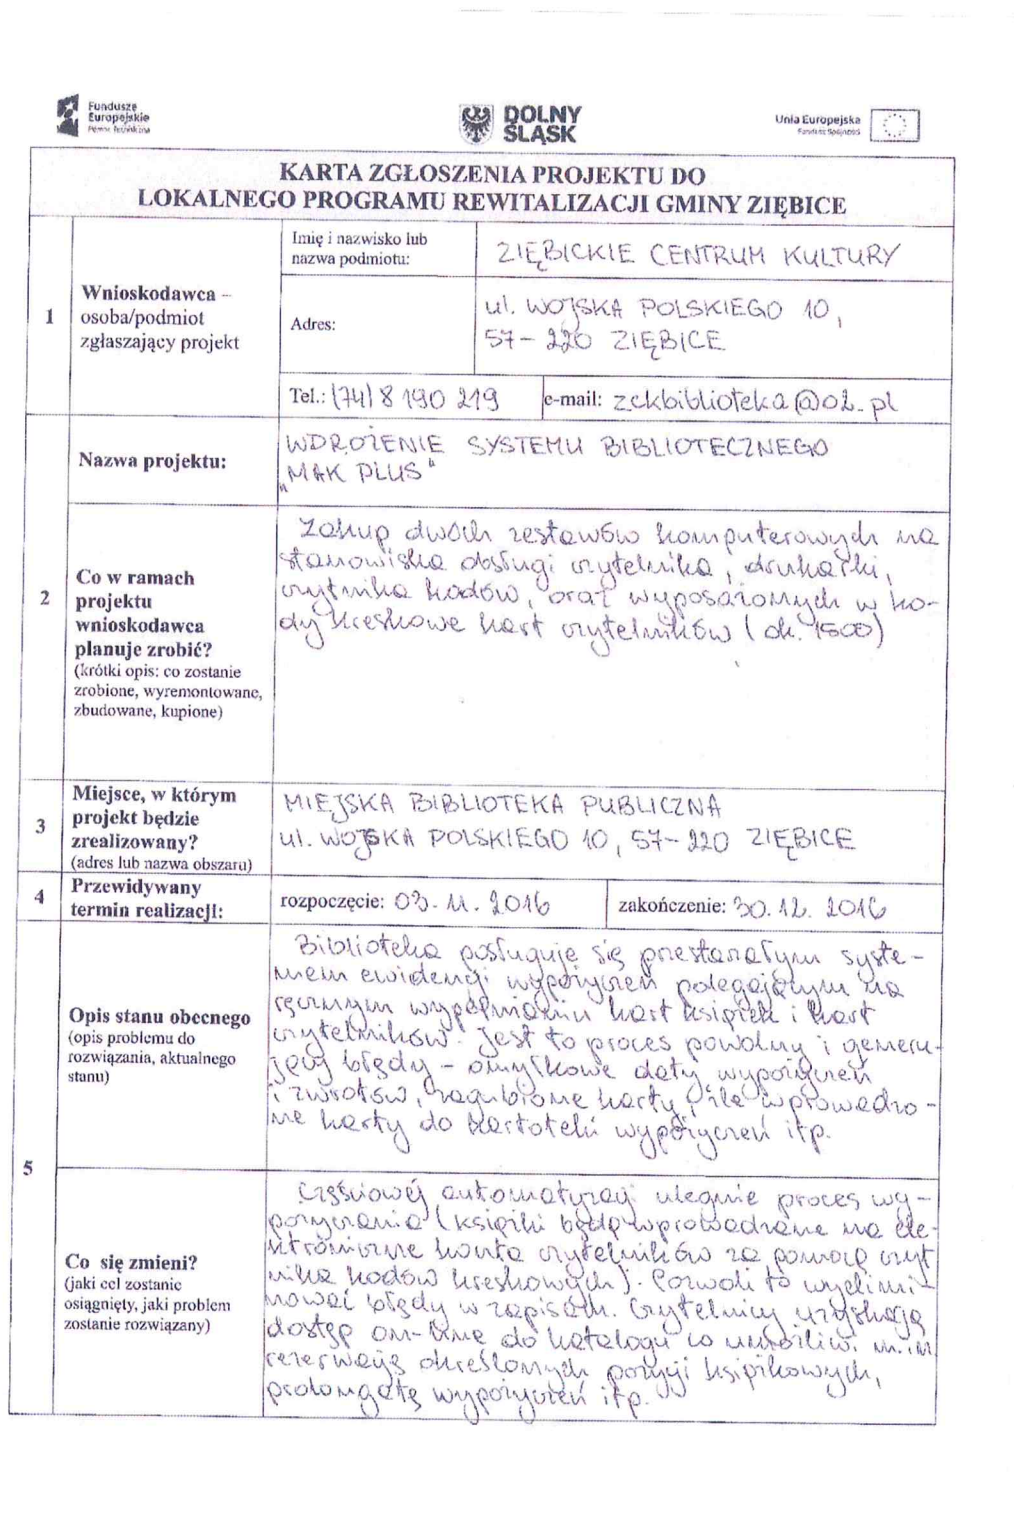 Fundusze
Europejskie
Pomoc Techniczna
DOLNY
ŚLĄSK
Unia Europejska
Fundusz Spójności
KARTA ZGŁOSZENIA PROJEKTU DO
LOKALNEGO PROGRAMU REWITALIZACJI GMINY ZIĘBICE
1
Wnioskodawca –
osoba/podmiot
zgłaszający projekt
Imię i nazwisko lub
nazwa podmiotu:
ZIĘBICKIE CENTRUM KULTURY
Adres:
ul. WOJSKA POLSKIEGO 10,
57-220 ZIĘBICE
Tel.: (74) 8 190 219
e-mail: zckbiblioteka@o2.pl
2
Nazwa projektu:
WDROŻENIE SYSTEMU BIBLIOTECZNEGO
„MAK PLUS"
Co w ramach
projektu
wnioskodawca
planuje zrobić?
(krótki opis: co zostanie
zrobione, wyremontowane,
zbudowane, kupione)
Zakup dwóch zestawów komputerowych na
stanowiska obsługi czytelnika, drukarki,
czytnika kodów, oraz wyposażonych w ko-
dy kreskowe kart czytelników (ok. 1500)
3
Miejsce, w którym
projekt będzie
zrealizowany?
(adres lub nazwa obszaru)
MIEJSKA BIBLIOTEKA PUBLICZNA
ul. WOJSKA POLSKIEGO 10, 57-220 ZIĘBICE
4
Przewidywany
termin realizacji:
rozpoczęcie: 03.11.2016
zakończenie: 30.12.2016
5
Opis stanu obecnego
(opis problemu do
rozwiązania, aktualnego
stanu)
Biblioteka posługuje się przestarzałym syste-
mem ewidencji wypożyczeń polegającym na
ręcznym wypełnianiu kart książek i kart
czytelników. Jest to proces powolny i generu-
jący błędy – omyłkowe daty wypożyczeń
i zwrotów, zagubione karty, źle wprowadzo-
ne karty do kartoteki wypożyczeń itp.
Co się zmieni?
(jaki cel zostanie
osiągnięty, jaki problem
zostanie rozwiązany)
Częściowej automatyzacji ulegnie proces wy-
pożyczania (książki będą wprowadzane na ele-
ktroniczne konta czytelników za pomocą czyt
nika kodów kreskowych). Pozwoli to wyelimi-
nować błędy w zapisach. Czytelnicy uzyskają
dostęp on-line do katalogu co umożliwi m.in
rezerwację określonych pozycji książkowych,
prolongatę wypożyczeń itp.